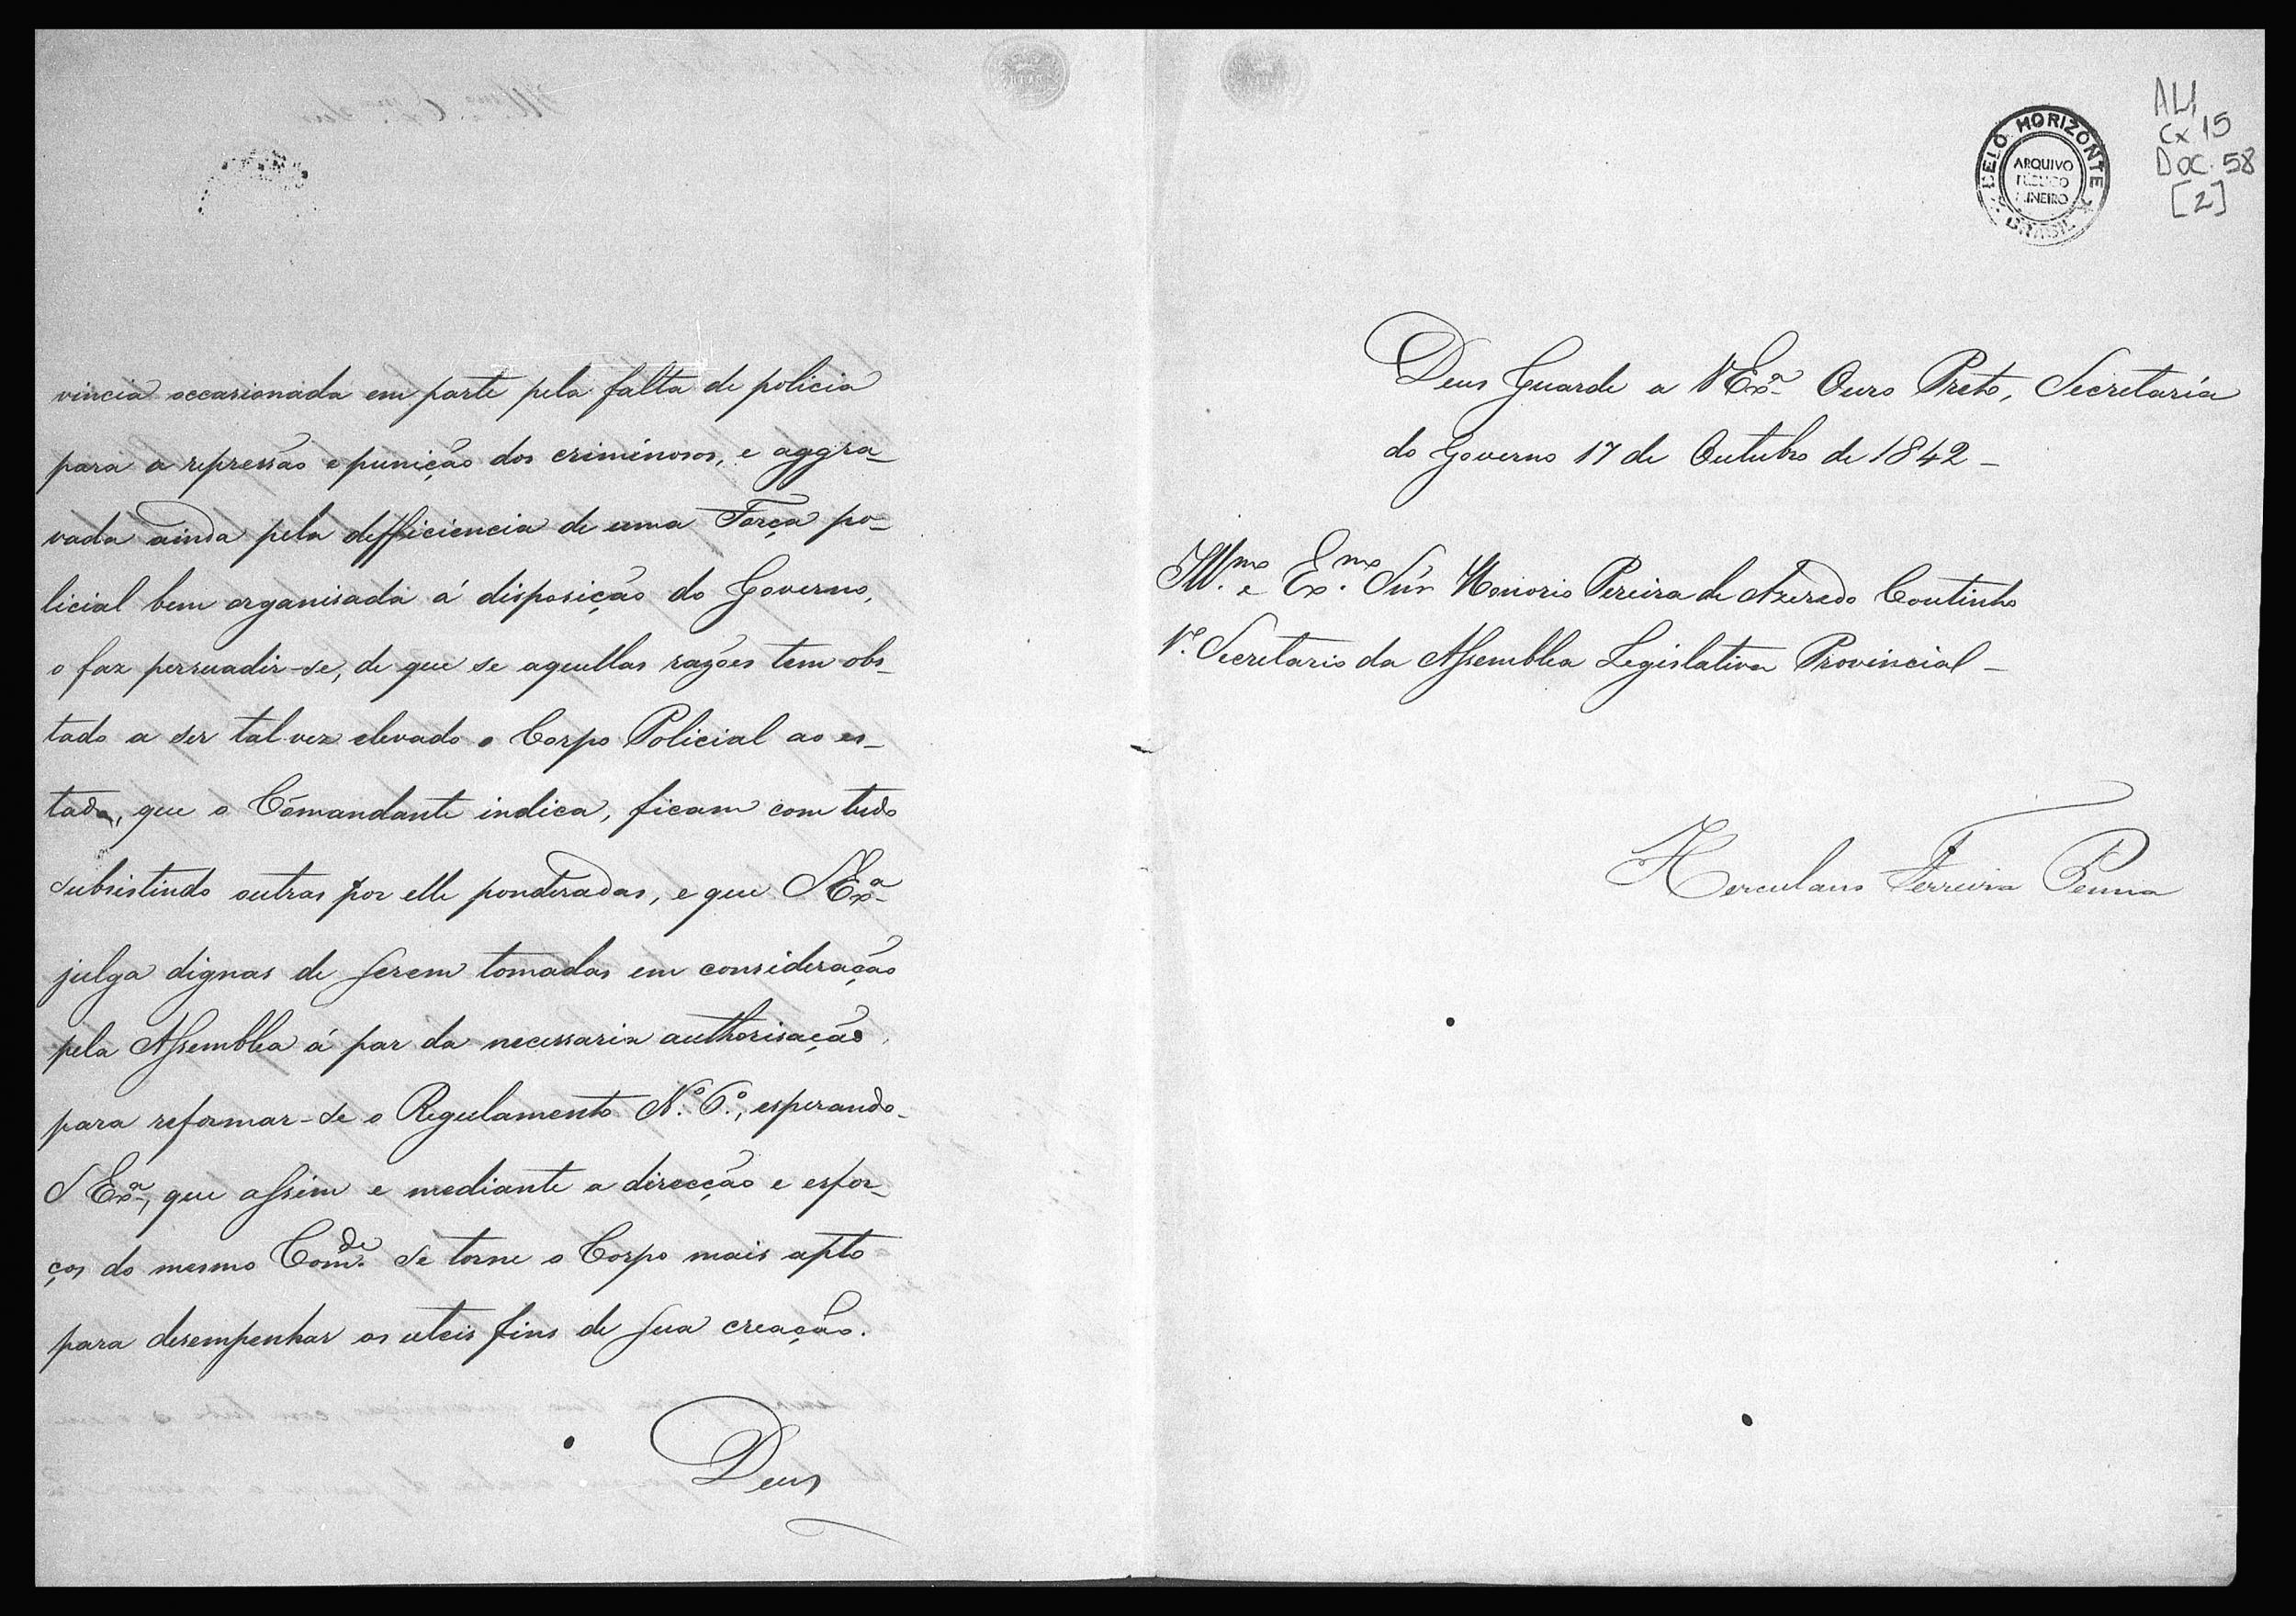 vincia occasionada em parte pela falta de policia
para a repressão e punição dos criminosos, e aggra-
vada ainda pela defficiencia de uma Força po-
licial bem organisada á disposição do Governo,
o faz persuadir-se, de que se aquellas razões tem obs-
tado a ser tal vez elevado o Corpo Policial ao es-
tado, que o Cõmandante indica, ficam com tudo
subsistindo outras por elle ponderadas, e que S Exª
julga dignas de serem tomadas em consideração
pela Assemblea á par da necessaria authorisação
para reformar-se o Regulamento N.º 6.º, esperando
S Exª, que assim e mediante a direcção e esfor-
ços do mesmo Com.de se torne o Corpo mais apto
para desempenhar os uteis fins de sua creação.
Deus
ALI,
Cx 15
Doc. 58
[2]
BELO HORIZONTE
ARQUIVO
PUBLICO
MINEIRO
BRASIL
Deus Guarde a V Exª Ouro Preto, Secretaría
do Governo 17 de Outubro de 1842-
Ill.mo e Ex.mo Sñr Honorio Pereira de Azeredo Coutinho
1º. Secretario da Assemblea Legislativa Provincial-
Herculano Ferreira Penna